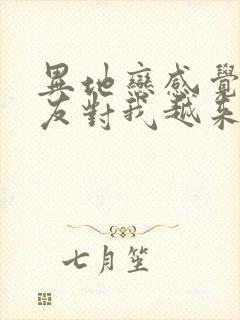 異地戀感覺
友對我越來
七月笙